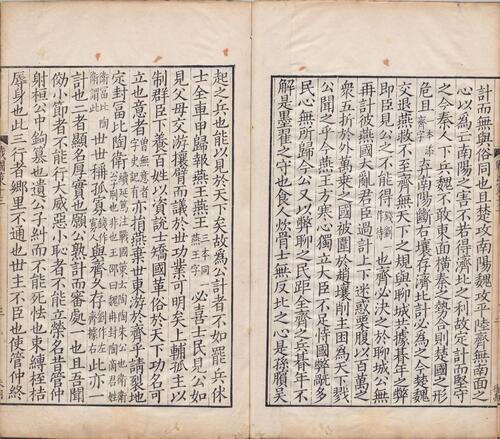 計而無與俗同也且楚攻南陽魏攻平陸齊無南面之
心以為亡南陽之害不若得濟北之利故定計而堅守
之今秦人下兵魏不敢東面橫秦之勢合則楚國之形
危且棄南陽斷右壤存濟北計必為之今楚魏
交退燕救不至齊無天下之規與聊城共據朞年之弊
即臣見公之不能得也齊必決之於聊城公無
再計彼燕國大亂君臣過計上下迷惑栗腹以百萬之
衆五折於外萬乘之國被圍於趙壤削主困為天下戮
公聞之乎今燕王方寒心獨立大臣不足恃國弊多
民心無所歸今公又以弊聊之民距全齊之兵朞年不
解是墨翟之守也食人炊骨士無反北之心是孫臏吳
起之兵也能以見於天下矣故為公計者不如罷兵休
士全車甲歸報燕王燕王三本同燕王字必喜士民見公如
見父母交游攘臂而議於世功業可明矣上輔孤主以
制群臣下養百姓以資説士矯國革俗於天下功名可
立也意者曾無意者字史記有亦捐燕棄世東游於齊乎請裂地
定封冨比陶衛續延篤注戰國策云陶陶朱公也衛衛
世世稱孤寡與齊久存此亦一
計也二者顯名厚實也願公熟計而審處一也且吾聞
傚小節者不能行大威惡小恥者不能立榮名昔管仲
射桓公中鉤篡也遺公子糾而不能死怯也束縛桎梏
辱身也此三行者鄉里不通也世主不臣也使管仲終